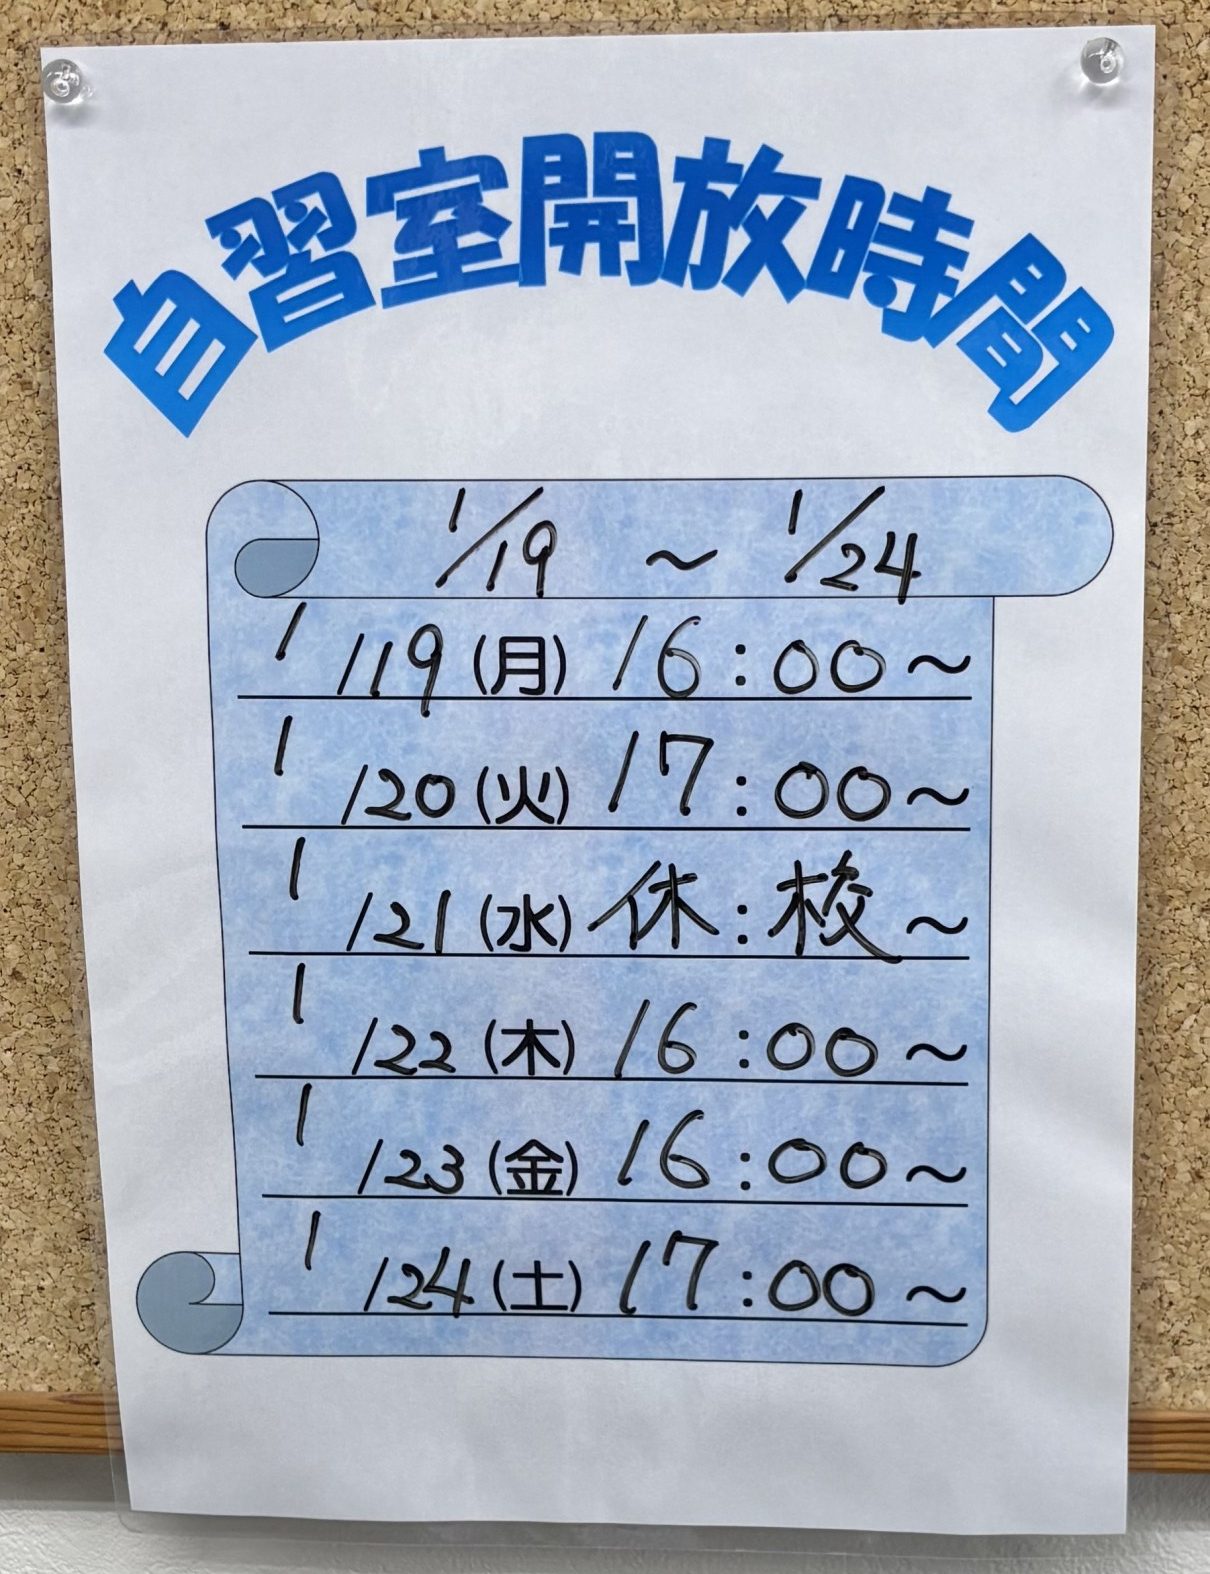 自習室開放時間
1/19 ～ 1/24
1/19(月) 16:00～
1/20(火) 17:00～
1/21(水) 休:校～
1/22(木) 16:00～
1/23(金) 16:00～
1/24(土) 17:00～